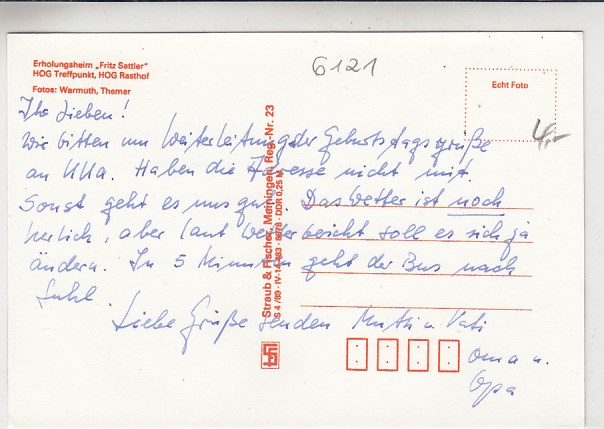 6121
Erholungsheim „Fritz Sattler"
HOG Treffpunkt, HOG Rasthof
Fotos: Warmuth, Themar
Echt Foto
4,-
Ihr Lieben!
Wir bitten um Weiterleitung der Geburtstagsgrüße
an Ulla. Haben die Adresse nicht mit.
Sonst geht es uns gut. Das Wetter ist noch
herlich, aber laut Wetterbericht soll es sich ja
ändern. In 5 Minuten geht der Bus nach
Suhl.
Liebe Grüße senden Mutti u. Vati
Oma u.
Opa
Straub & Fischer, Meiningen, Reg.-Nr. 23
S 4/89 · IV-14-483 · DDR 0,25 M